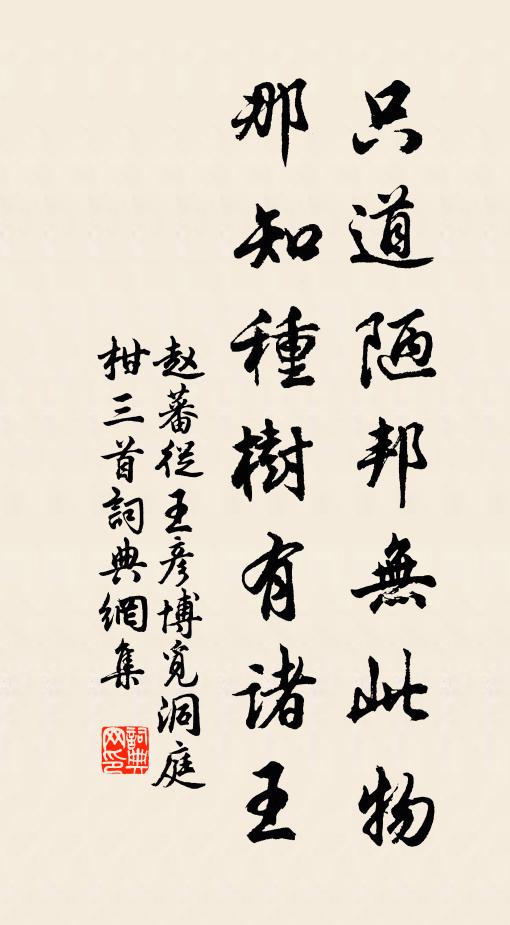 只道陋邦無此物
那知種樹有諸王
赵蕃從王彥博覓洞庭
柑三首詞典網集
詞典网印